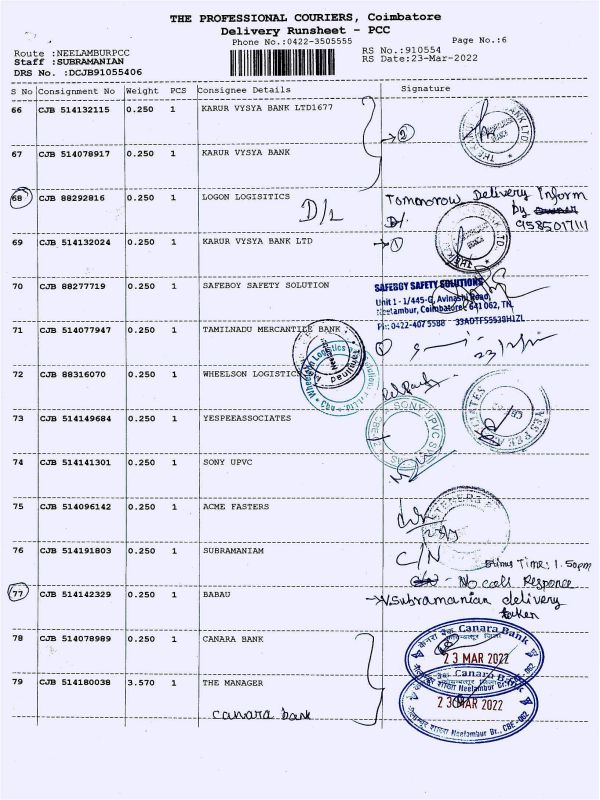 THE PROFESSIONAL COURIERS, Coimbatore
Delivery Runsheet - PCC
Phone No.:0422-3505555
Page No.:6
Route :NEELAMBURPCC
RS No.:910554
Staff :SUBRAMANIAN
RS Date:23-Mar-2022
DRS No. :DCJB91055406
S No Consignment No Weight PCS Consignee Details Signature
66 CJB 514132115 0.250 1 KARUR VYSYA BANK LTD1677
2
67 CJB 514078917 0.250 1 KARUR VYSYA BANK
68 CJB 88292816 0.250 1 LOGON LOGISITICS
D/L
Tomorrow Delivery Inform
by
9585017111
69 CJB 514132024 0.250 1 KARUR VYSYA BANK LTD
1
70 CJB 88277719 0.250 1 SAFEBOY SAFETY SOLUTION
SAFEBOY SAFETY SOLUTIONS
Unit 1 - 1/445-G, Avinashi Road,
Neelambur, Coimbatore - 641 062, TN.
Ph: 0422-407 5588
71 CJB 514077947 0.250 1 TAMILNADU MERCANTILE BANK
72 CJB 88316070 0.250 1 WHEELSON LOGISTICS
73 CJB 514149684 0.250 1 YESPEEASSOCIATES
SONY UPVC
74 CJB 514141301 0.250 1 SONY UPVC
75 CJB 514096142 0.250 1 ACME FASTERS
76 CJB 514191803 0.250 1 SUBRAMANIAM
C/N
Time: 1.50pm
No calls Responce
77 CJB 514142329 0.250 1 BABAU
V.Subramanian delivery
taken
78 CJB 514078989 0.250 1 CANARA BANK
Canara Bank
23 MAR 2022
Neelambur Br.
79 CJB 514180038 3.570 1 THE MANAGER
canara bank
Canara Bank
23 MAR 2022
Neelambur Br., CBE -062